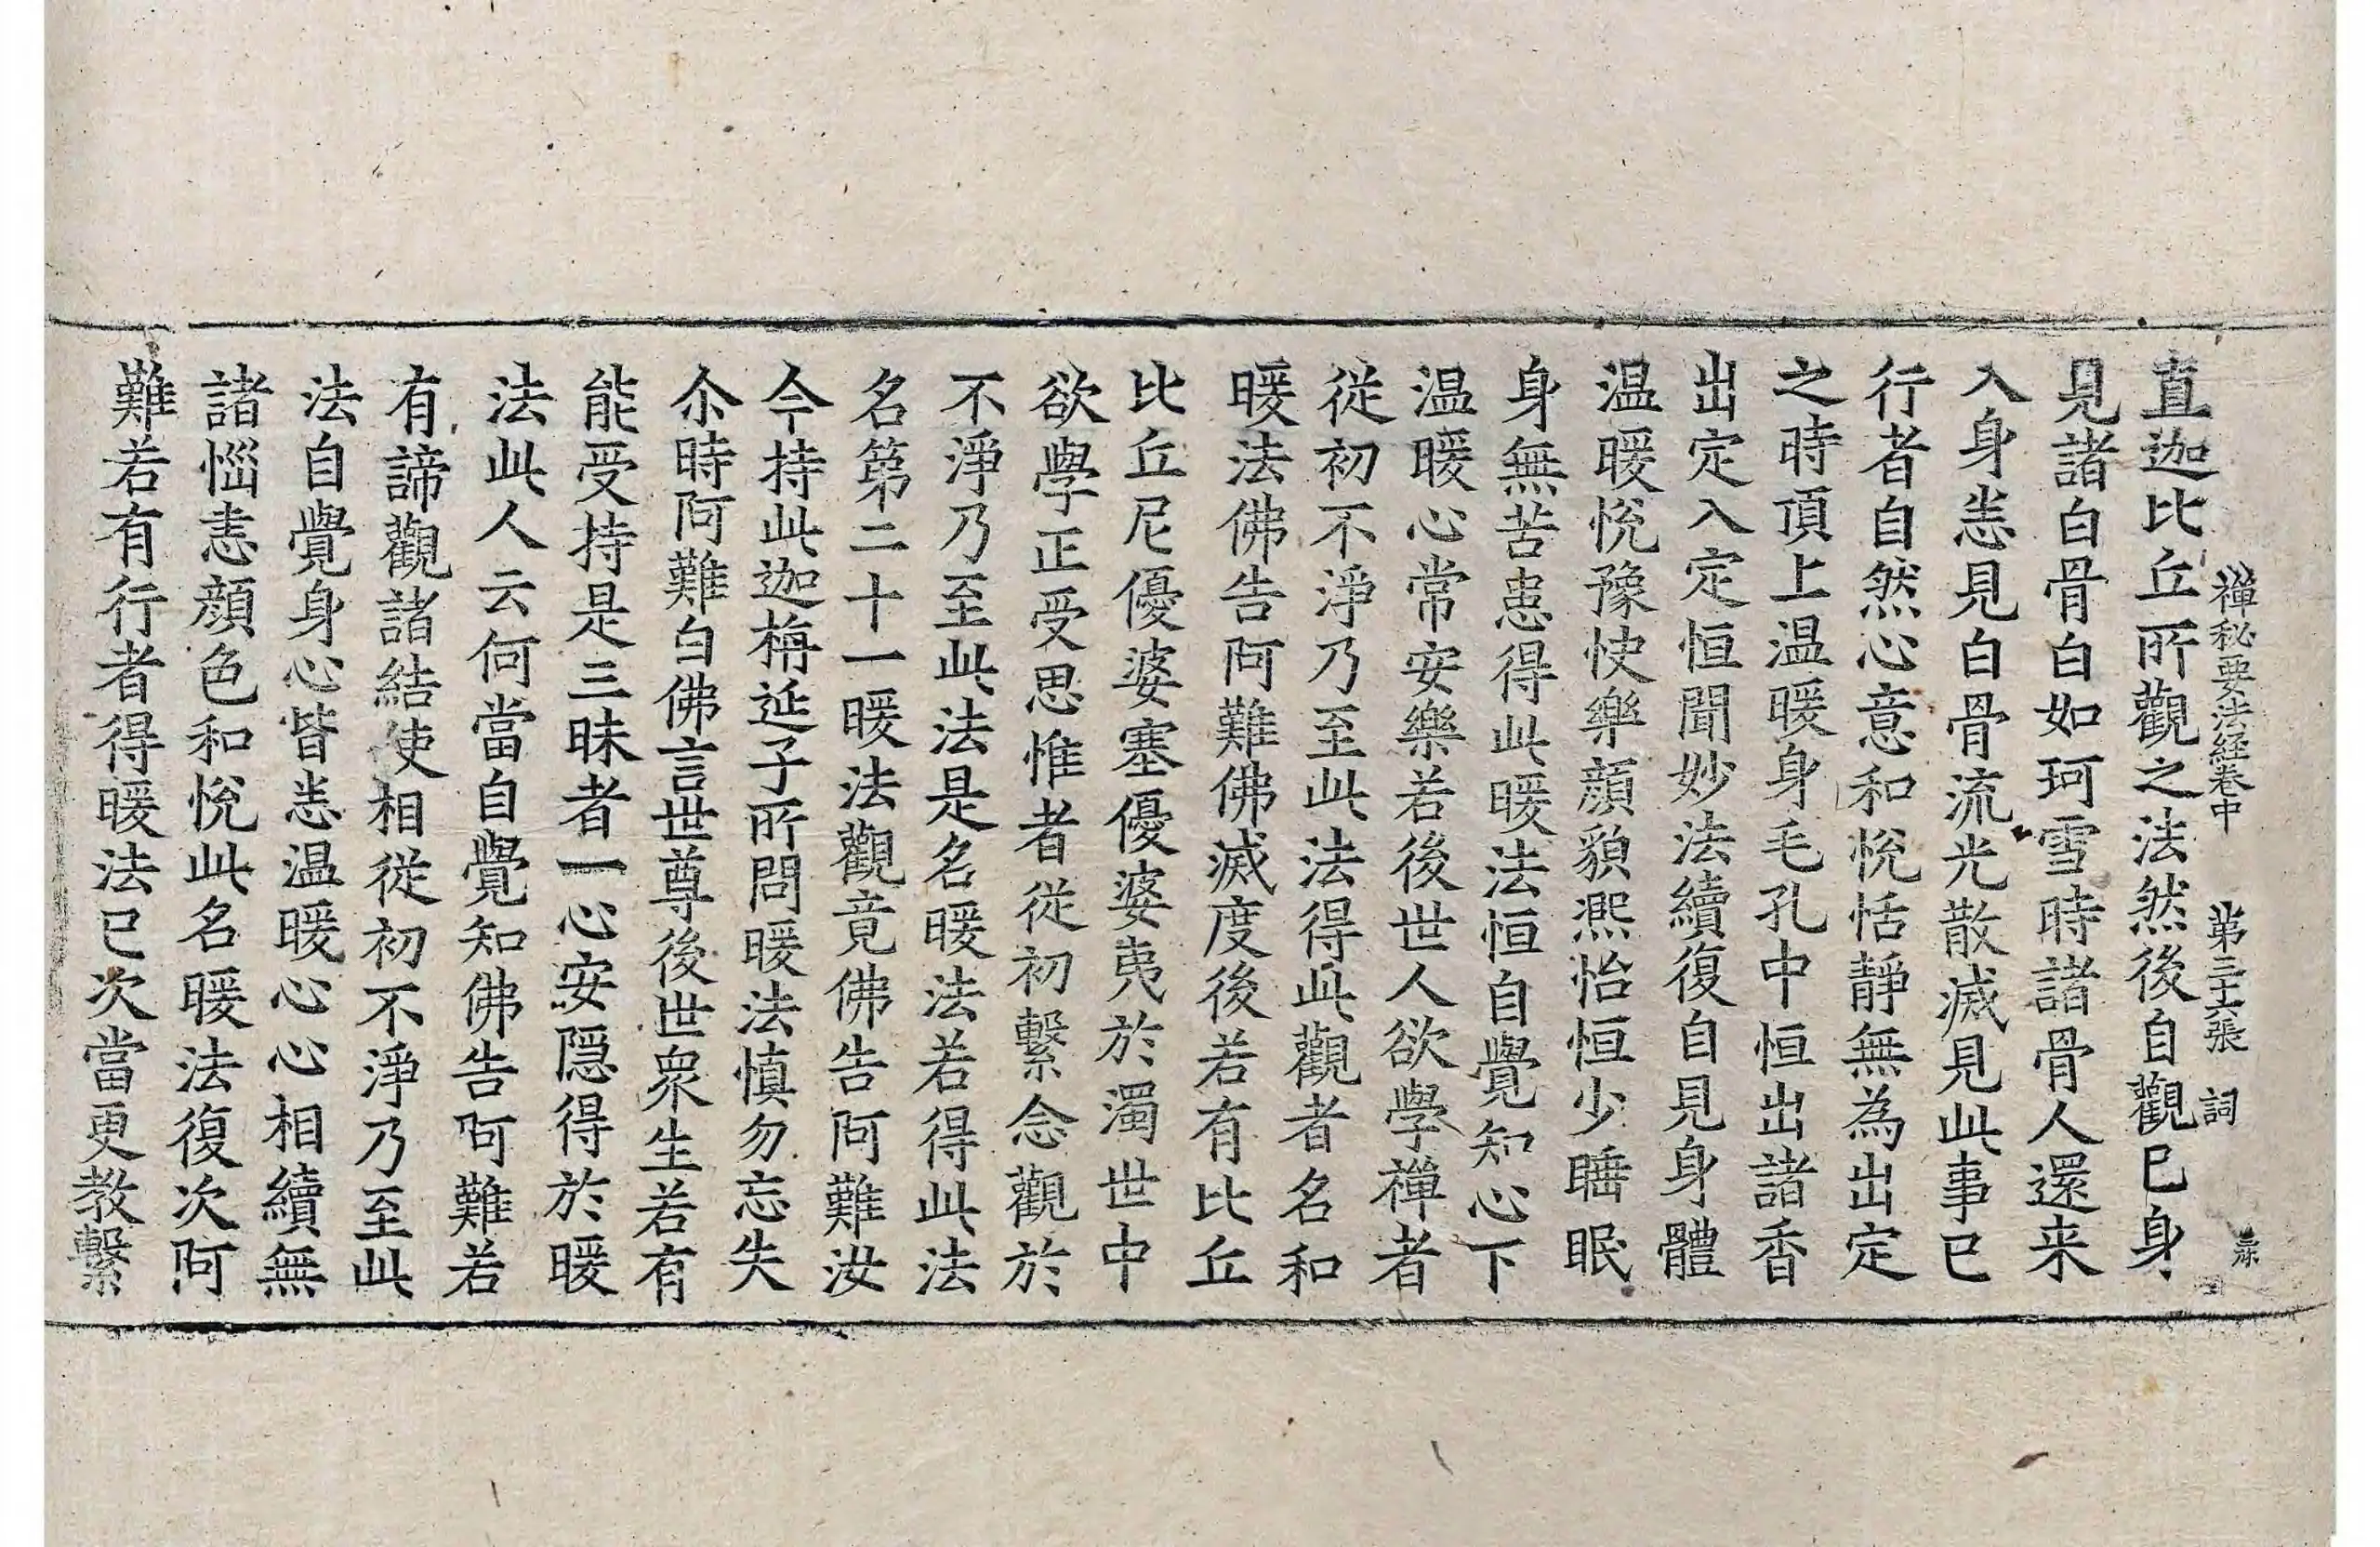 禪秘要法經卷中　第三十六張　詞
直迦比丘所觀之法然後自觀已身
見諸白骨白如珂雪時諸骨人還来
入身恙見白骨流光散滅見此事已
行者自然心意和悅恬靜無為出定
之時頂上温暖身毛孔中恒出諸香
出定入定恒聞妙法續復自見身體
温暖悅豫快樂顔貌熈怡恒少睡眠
身無苦患得此暖法恒自覺知心下
温暖心常安樂若後世人欲學禪者
從初不淨乃至此法得此觀者名和
暖法佛告阿難佛滅度後若有比丘
比丘尼優婆塞優婆夷於濁世中
欲學正受思惟者從初繫念觀於
不淨乃至此法是名暖法若得此法
名第二十一暖法觀竟佛告阿難汝
今持此迦栴延子所問暖法慎勿忘失
尒時阿難白佛言世尊後世衆生若有
能受持是三昧者一心安隠得於暖
法此人云何當自覺知佛告阿難若
有諦觀諸結使相從初不淨乃至此
法自覺身心皆恙温暖心心相續無
諸惱恚顔色和悅此名暖法復次阿
難若有行者得暖法已次當更教繫